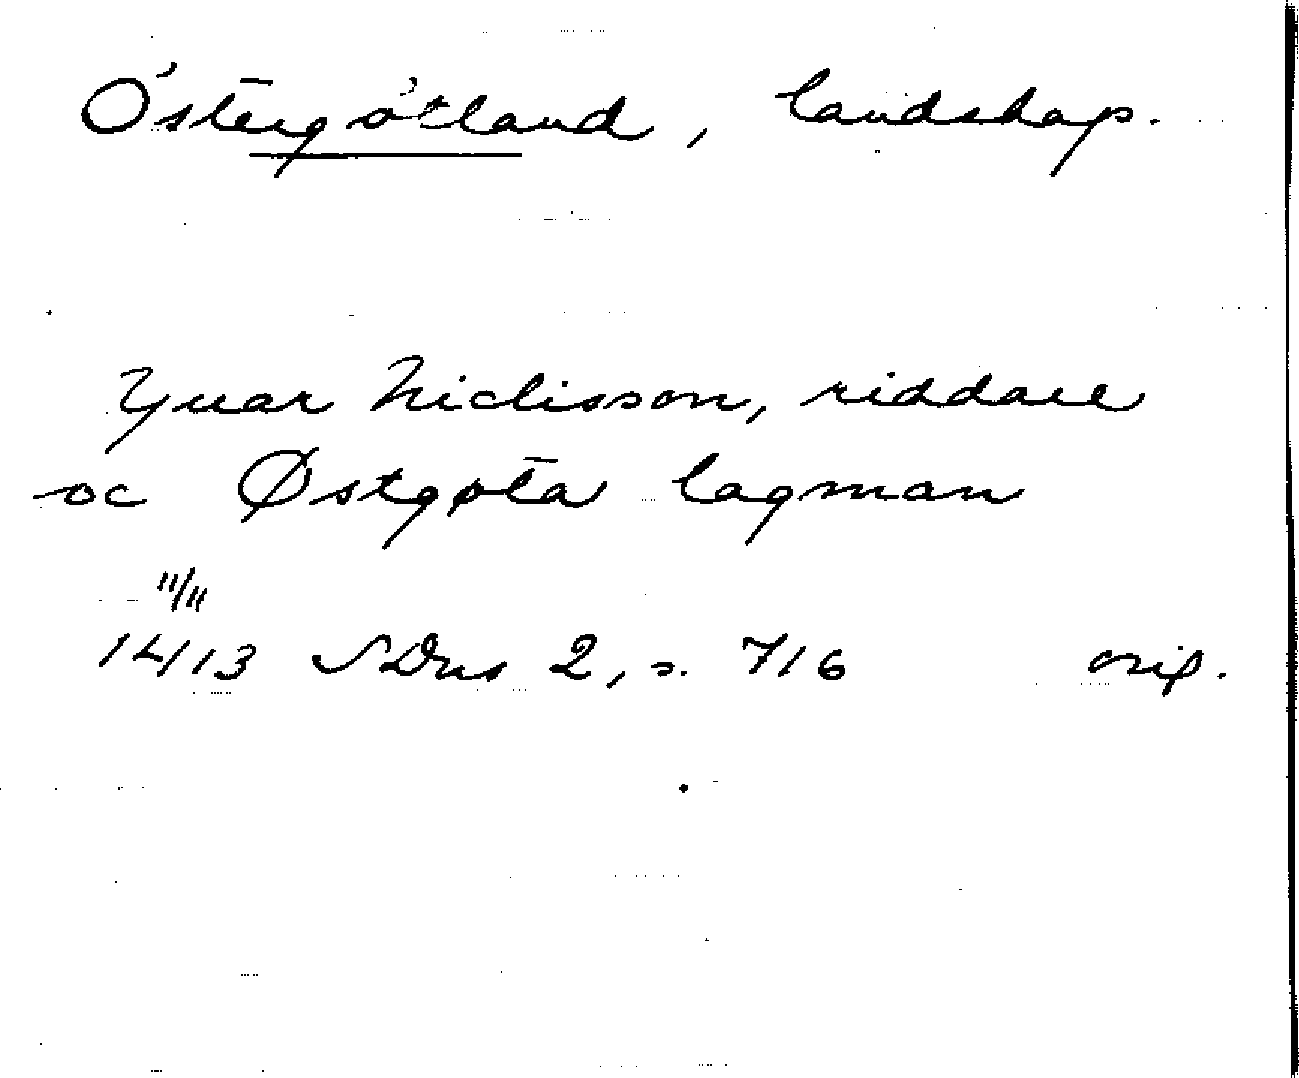 Östergötland, landskap.
Yuar Niclisson, riddare
oc Østgøta lagman
11/11
1413 SDns 2, s. 716 orig.